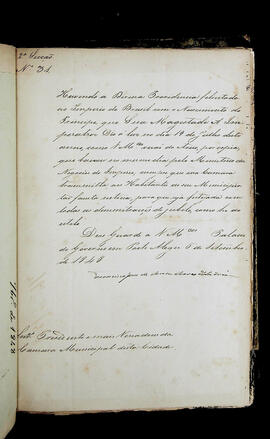 2ª Secção
Nº 31
Havendo a Divina Providencia felicitado
ao Imperio do Brasil com o Nascimento do
Principe que Sua Magestade A Im-
peratriz Deo á luz no dia 19 de Julho deste
anno, como V Mces verão do Aviso por copia,
que baixou no mesmo dia pelo Ministerio dos
Negocios do Imperio, cumpre que essa Camara
transmitta aos Habitantes do seu Municipio
tão fausta noticia, para que seja festejada com
todas as demonstrações de jubilo, como he de
estilo
Deos Guarde a V Mces Palacio
do Governo em Porto Alegre 5 de Setembro
de 1848
Senrs Presidente e mais Vereadores da
Camara Municipal desta Cidade